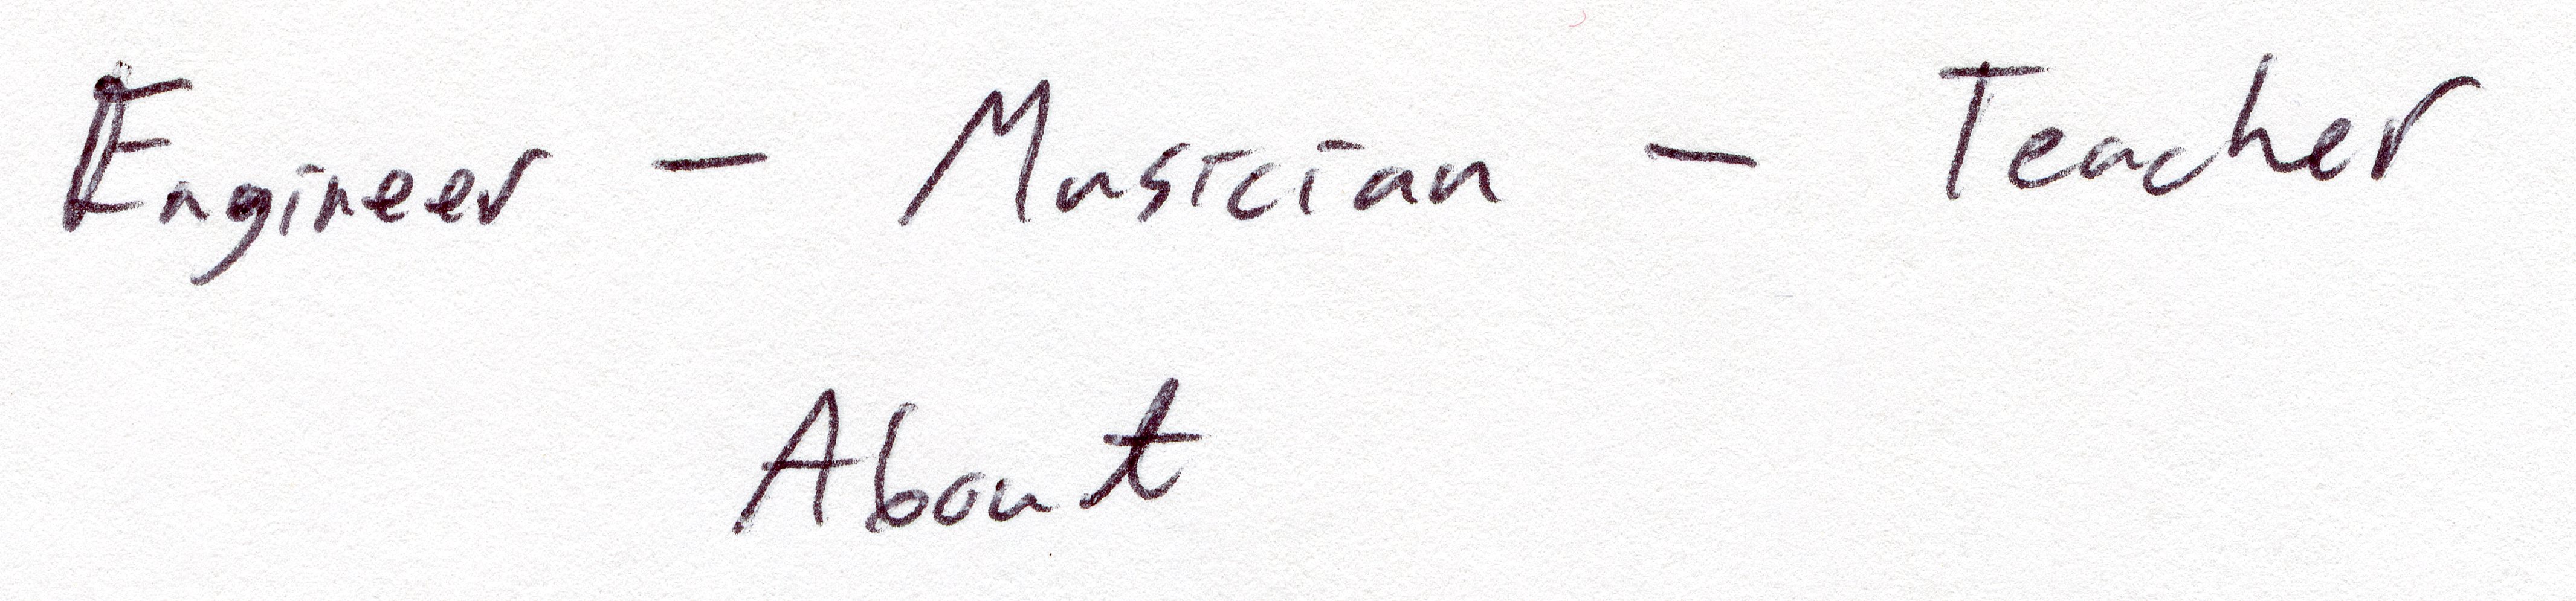 Engineer - Musician - Teacher
About